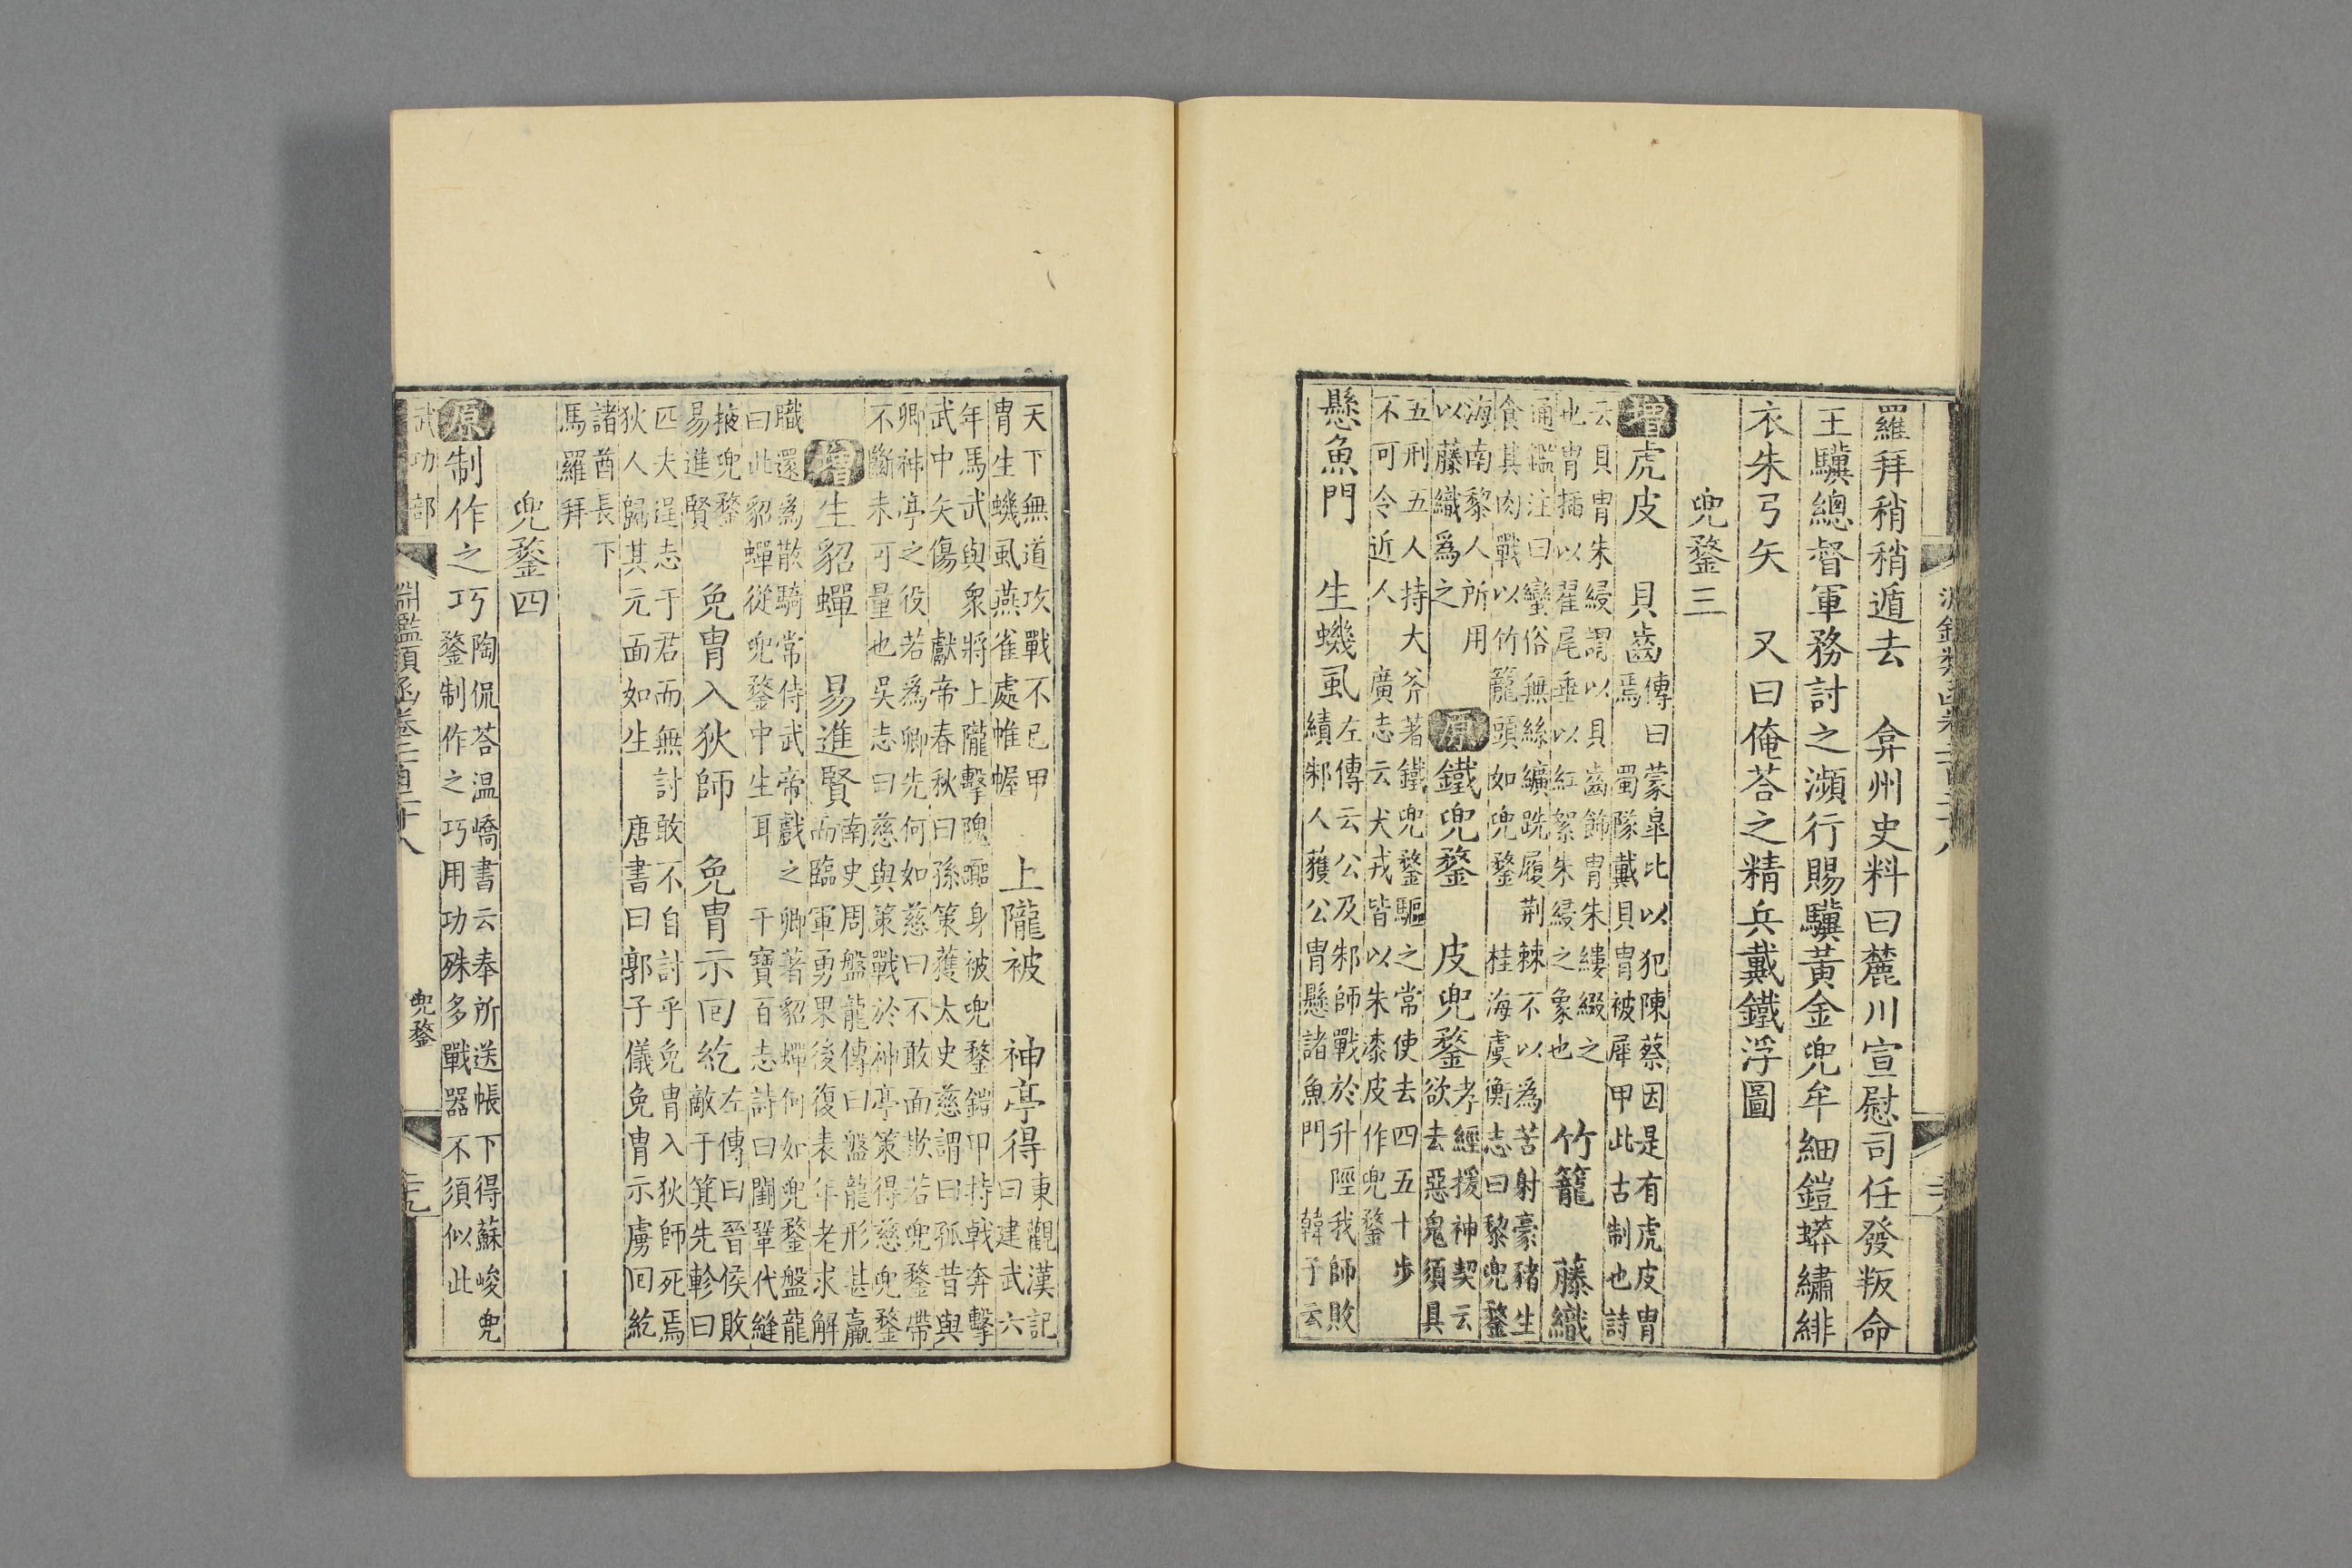 羅拜稍稍遁去　弇州史料曰麓川宣慰司任發叛命
王驥總督軍務討之瀕行賜驥黃金兜牟細鎧蟒繡緋
衣朱弓矢　又曰俺荅之精兵戴鐵浮圖
兜鍪三
增虎皮　貝齒
傳曰蒙皐比以犯陳蔡因是有虎皮冑
焉　蜀隊戴貝冑被犀甲此古制也詩
云貝冑朱綅謂以貝齒飾冑朱縷綴之
也冑插以翟尾垂以紅絮朱綅之象也
竹籠　藤織
通鑑注曰蠻俗無絲纊跣履荊棘不以為苦射豪豬生
食其肉戰以竹籠頭如兜鍪　桂海虞衡志曰黎兜鍪
海南黎人所用
以藤織爲之
原鐵兜鍪　皮兜鍪
孝經援神契云
欲去惡鬼須具
五刑五人持大斧著鐵兜鍪驅之常使去四五十步
不可令近人　廣志云犬戎皆以朱漆皮作兜鍪
懸魚門　生蟣虱
左傳云公及邾師戰於升陘我師敗
績邾人獲公冑懸諸魚門　韓子云
天下無道攻戰不已甲
冑生蟣虱燕雀處帷幄
上隴被　神亭得
東觀漢記
曰建武六
年馬武與衆將上隴擊隗囂身被兜鍪鎧甲持戟奔擊
武中矢傷　獻帝春秋曰孫策獲太史慈謂曰孤昔與
卿神亭之役若爲卿先何如慈曰不敢面欺若兜鍪帶
不斷未可量也吳志曰慈與策戰於神亭策得慈兜鍪
增生貂蟬　易進賢
南史周盤龍傳曰盤龍形甚羸
而臨軍勇果後復表年老求解
職還爲散騎常侍武帝戲之卿著貂蟬何如兜鍪盤龍
曰此貂蟬從兜鍪中生耳　干寶百志詩曰閨鞏代縫
掖兜鍪
易進賢
免冑入狄師　免冑示回紇
左傳曰晉侯敗
敵于箕先軫曰
匹夫逞志于君而無討敢不自討乎免冑入狄師死焉
狄人歸其元面如生　唐書曰郭子儀免冑示虜回紇
諸酋長下
馬羅拜
兜鍪四
原制作之巧
陶侃荅温嶠書云奉所送帳下得蘇峻兜
鍪制作之巧用功殊多戰器不須似此
武功部　淵鑑類函卷二百二十八　兜鍪